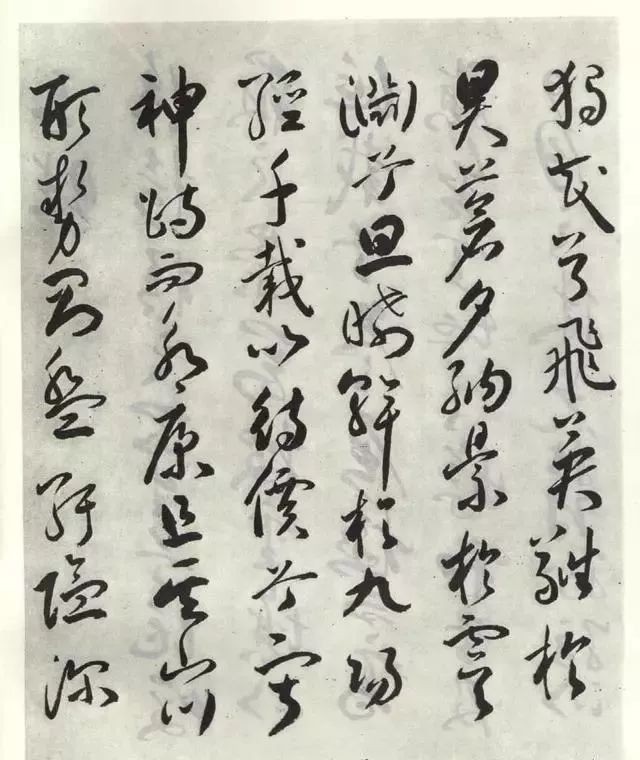 獨茂兮飛英蕤於
昊蒼夕納景於虞
淵兮旦晞幹於九陽
經千載以待價兮寂
神跱而永康且其山川
形勢則盤紆隱深